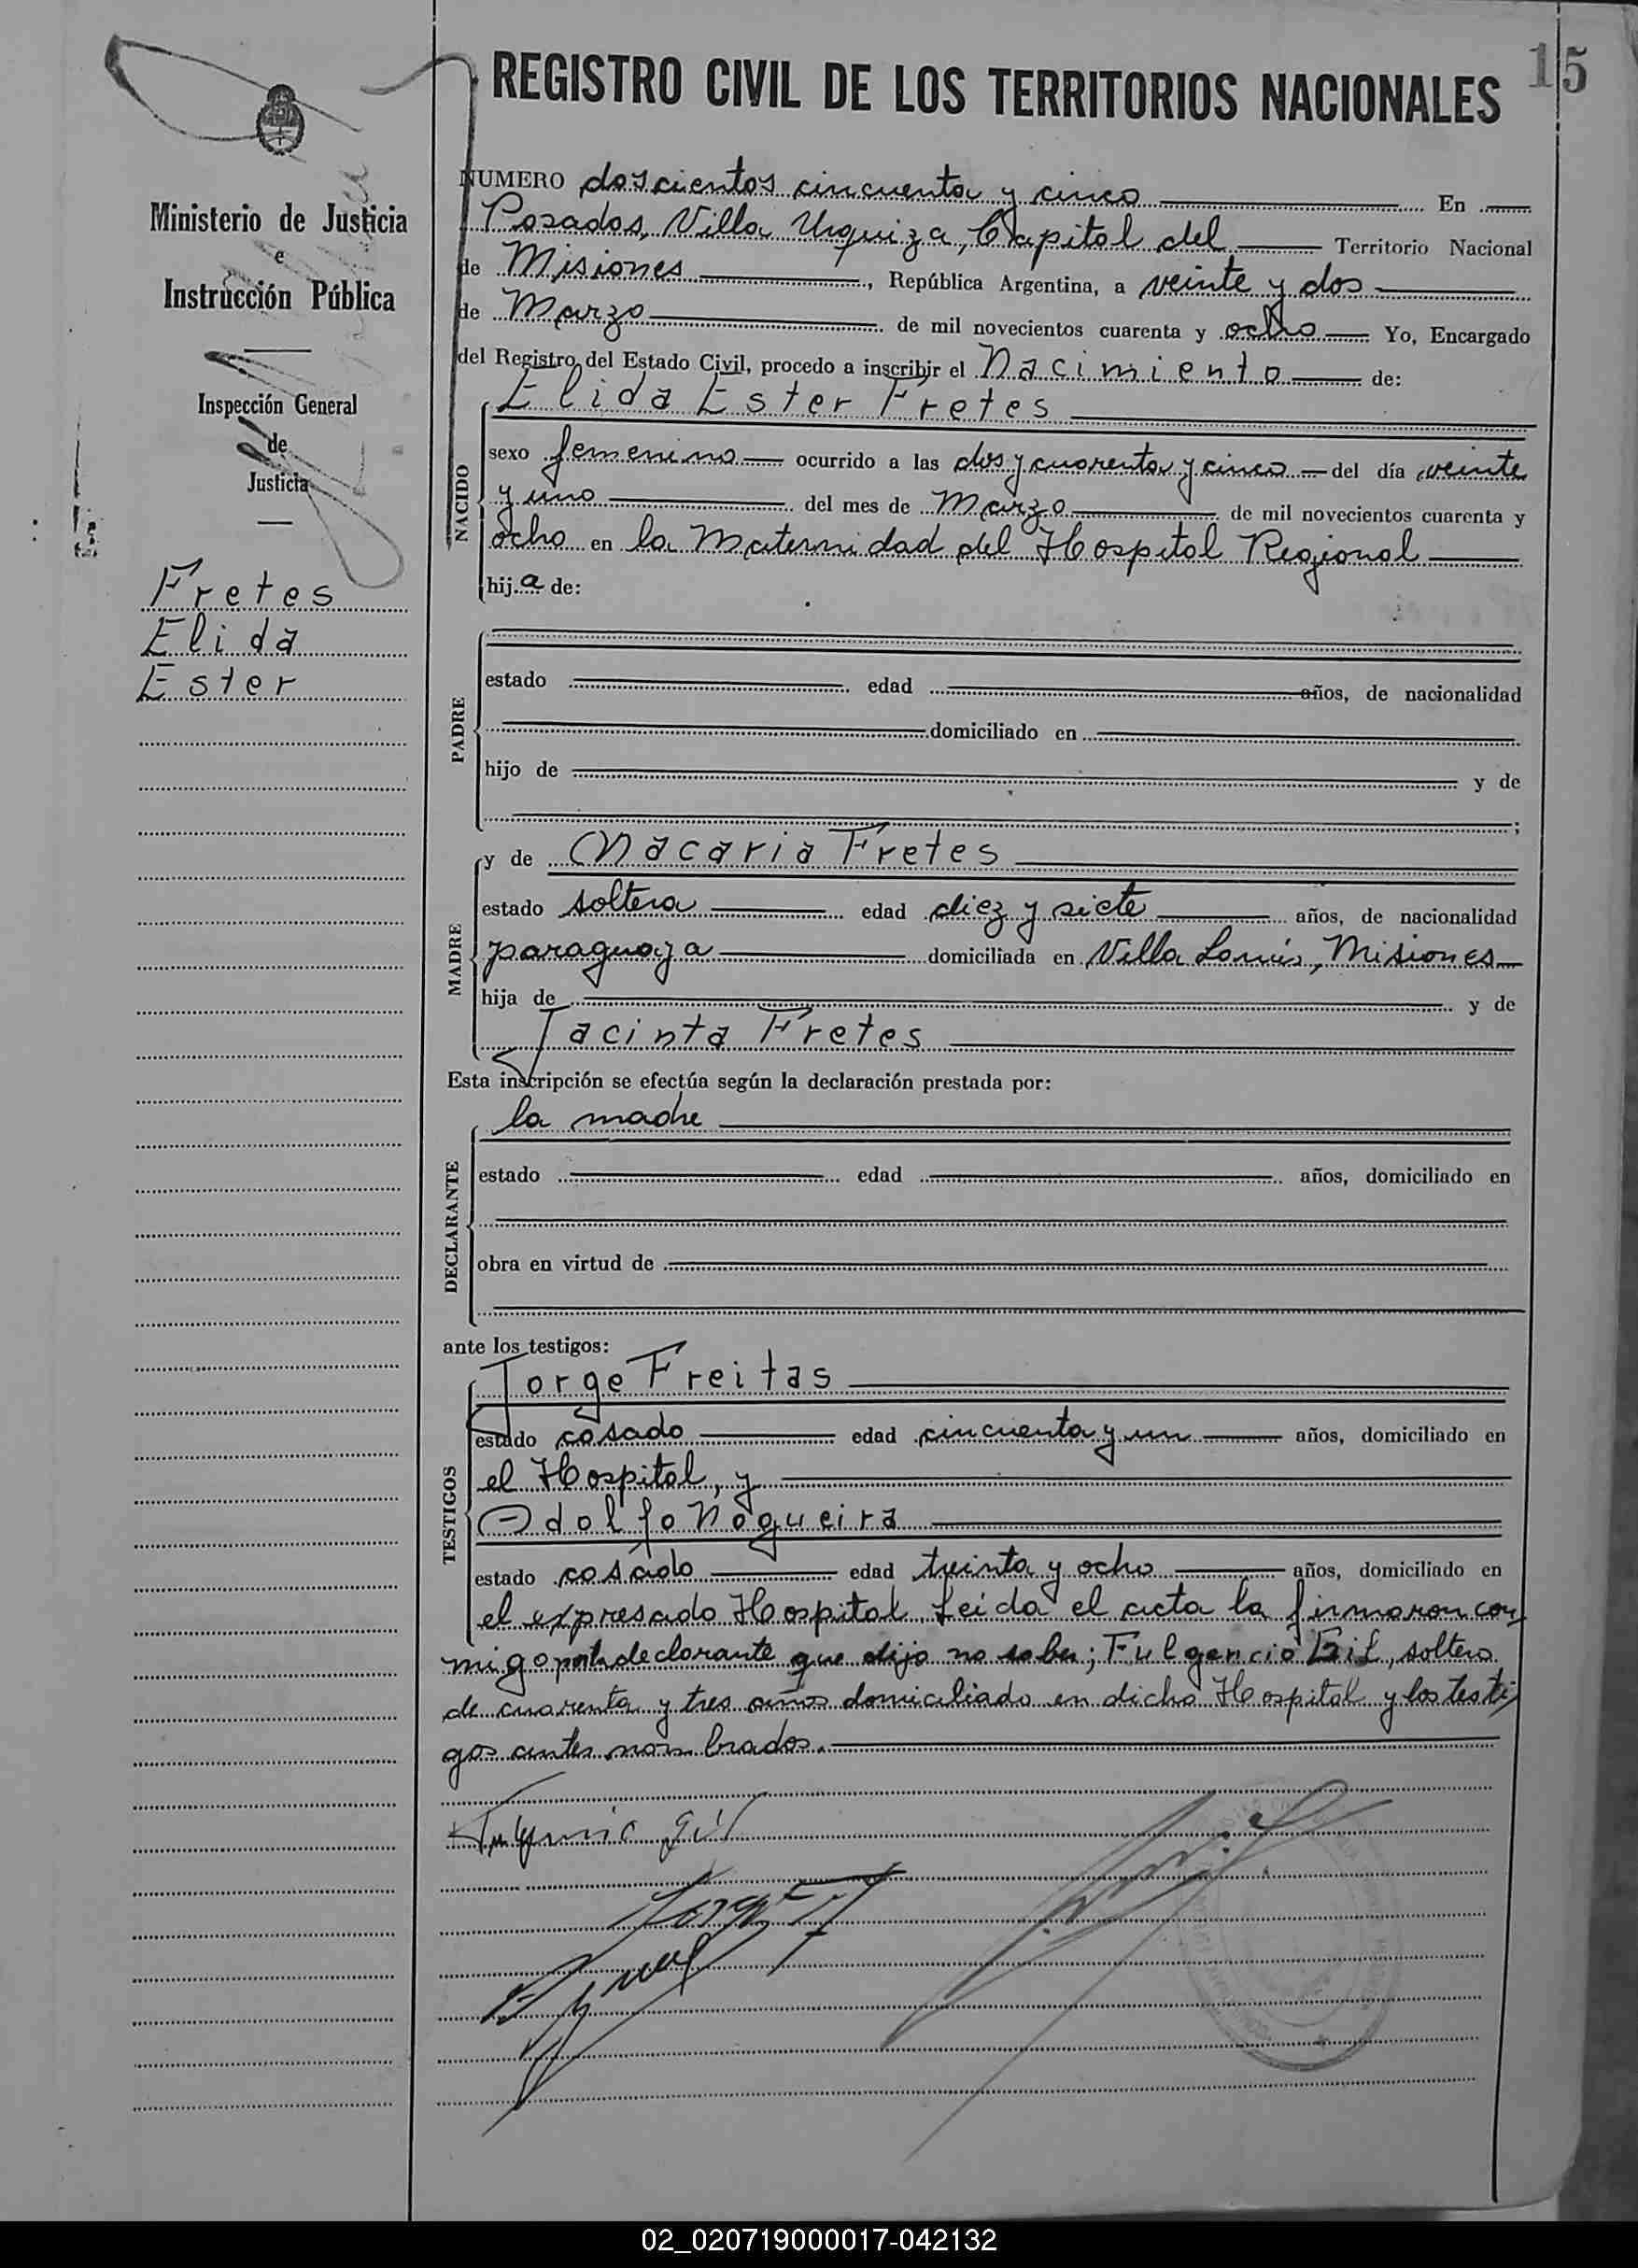 15
REGISTRO CIVIL DE LOS TERRITORIOS NACIONALES
Ministerio de Justicia
e
Instrucción Pública
Inspección General
de
Justicia
Fretes
Elida
Ester
NUMERO doscientos cincuenta y cinco En
Posadas, Villa Urquiza, Capital del Territorio Nacional
de Misiones, República Argentina, a veinte y dos
de Marzo de mil novecientos cuarenta y ocho Yo, Encargado
del Registro del Estado Civil, procedo a inscribir el Nacimiento de:
Elida Ester Fretes
NACIDO
sexo femenino ocurrido a las dos y cuarenta y cinco del día veinte
y uno del mes de Marzo de mil novecientos cuarenta y
ocho en la Maternidad del Hospital Regional
hija de:
PADRE
estado edad años, de nacionalidad
domiciliado en
hijo de y de
;
MADRE
y de Macaria Fretes
estado soltera edad diez y siete años, de nacionalidad
paraguaya domiciliada en Villa Lanús, Misiones
hija de y de
Jacinta Fretes
Esta inscripción se efectúa según la declaración prestada por:
la madre
DECLARANTE
estado edad años, domiciliado en
obra en virtud de
ante los testigos:
TESTIGOS
Jorge Freitas
estado casado edad cincuenta y un años, domiciliado en
el Hospital, y
Adolfo Nogueira
estado casado edad treinta y ocho años, domiciliado en
el expresado Hospital. Leída el acta la firmaron con
migo por la declarante que dijo no saber; Fulgencio Gil, soltero
de cuarenta y tres años domiciliado en dicho Hospital y los testi
gos antes nombrados.
Fulgencio Gil
02_020719000017-042132